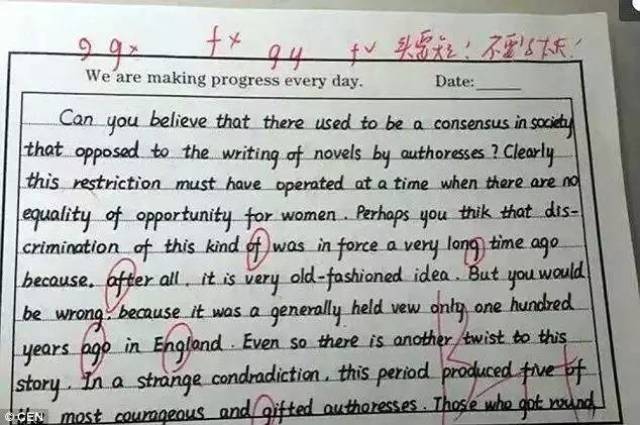 g g× f× g y f√ 头要 ! 不要 !
We are making progress every day. Date:
Can you believe that there used to be a consensus in society
that opposed to the writing of novels by authoresses ? Clearly
this restriction must have operated at a time when there are no
equality of opportunity for women . Perhaps you thik that dis-
crimination of this kind of was in force a very long time ago
because, after all , it is very old-fashioned idea . But you would
be wrong, because it was a generally held vew only one hundred
years ago in England . Even so there is another twist to this
story . In a strange condradiction , this period produced five of
the most courageous and gifted authoresses . Those who got round
©CEN